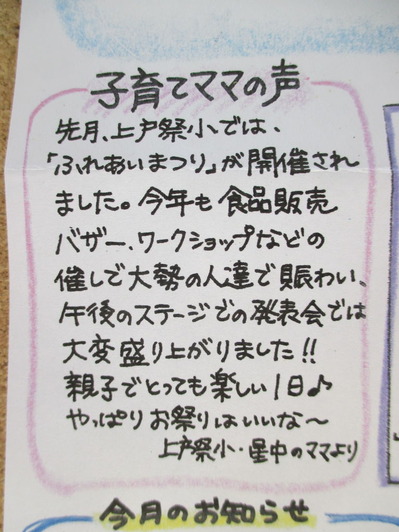 子育てママの声
先月、上戸祭小では、
「ふれあいまつり」が開催され
ました。今年も食品販売
バザー、ワークショップなどの
催しで大勢の人達で賑わい、
午後のステージでの発表会では
大変盛り上がりました!!
親子でとっても楽しい1日♪
やっぱりお祭りはいいな〜
上戸祭小・星中のママより
今月のお知らせ